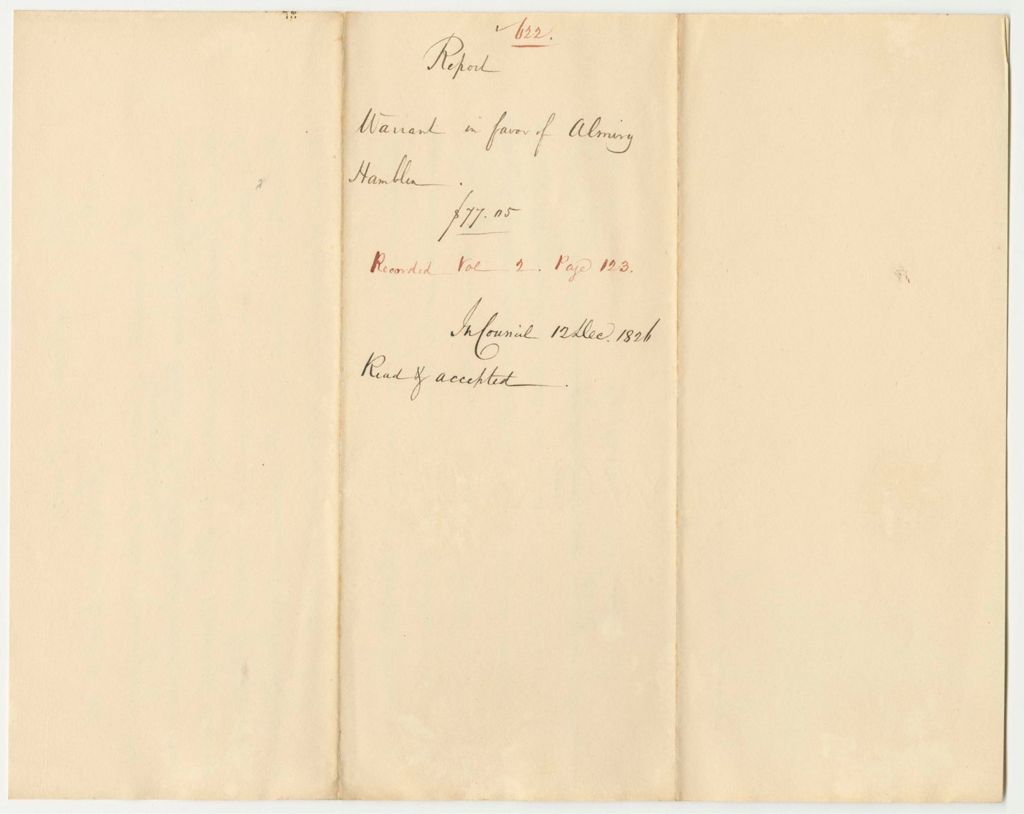 622.
Report
Warrant in favor of Almery
Hamblen.
$77.05
Recorded Vol 2. Page 123.
In Council 12 Dec. 1826
Read & accepted.